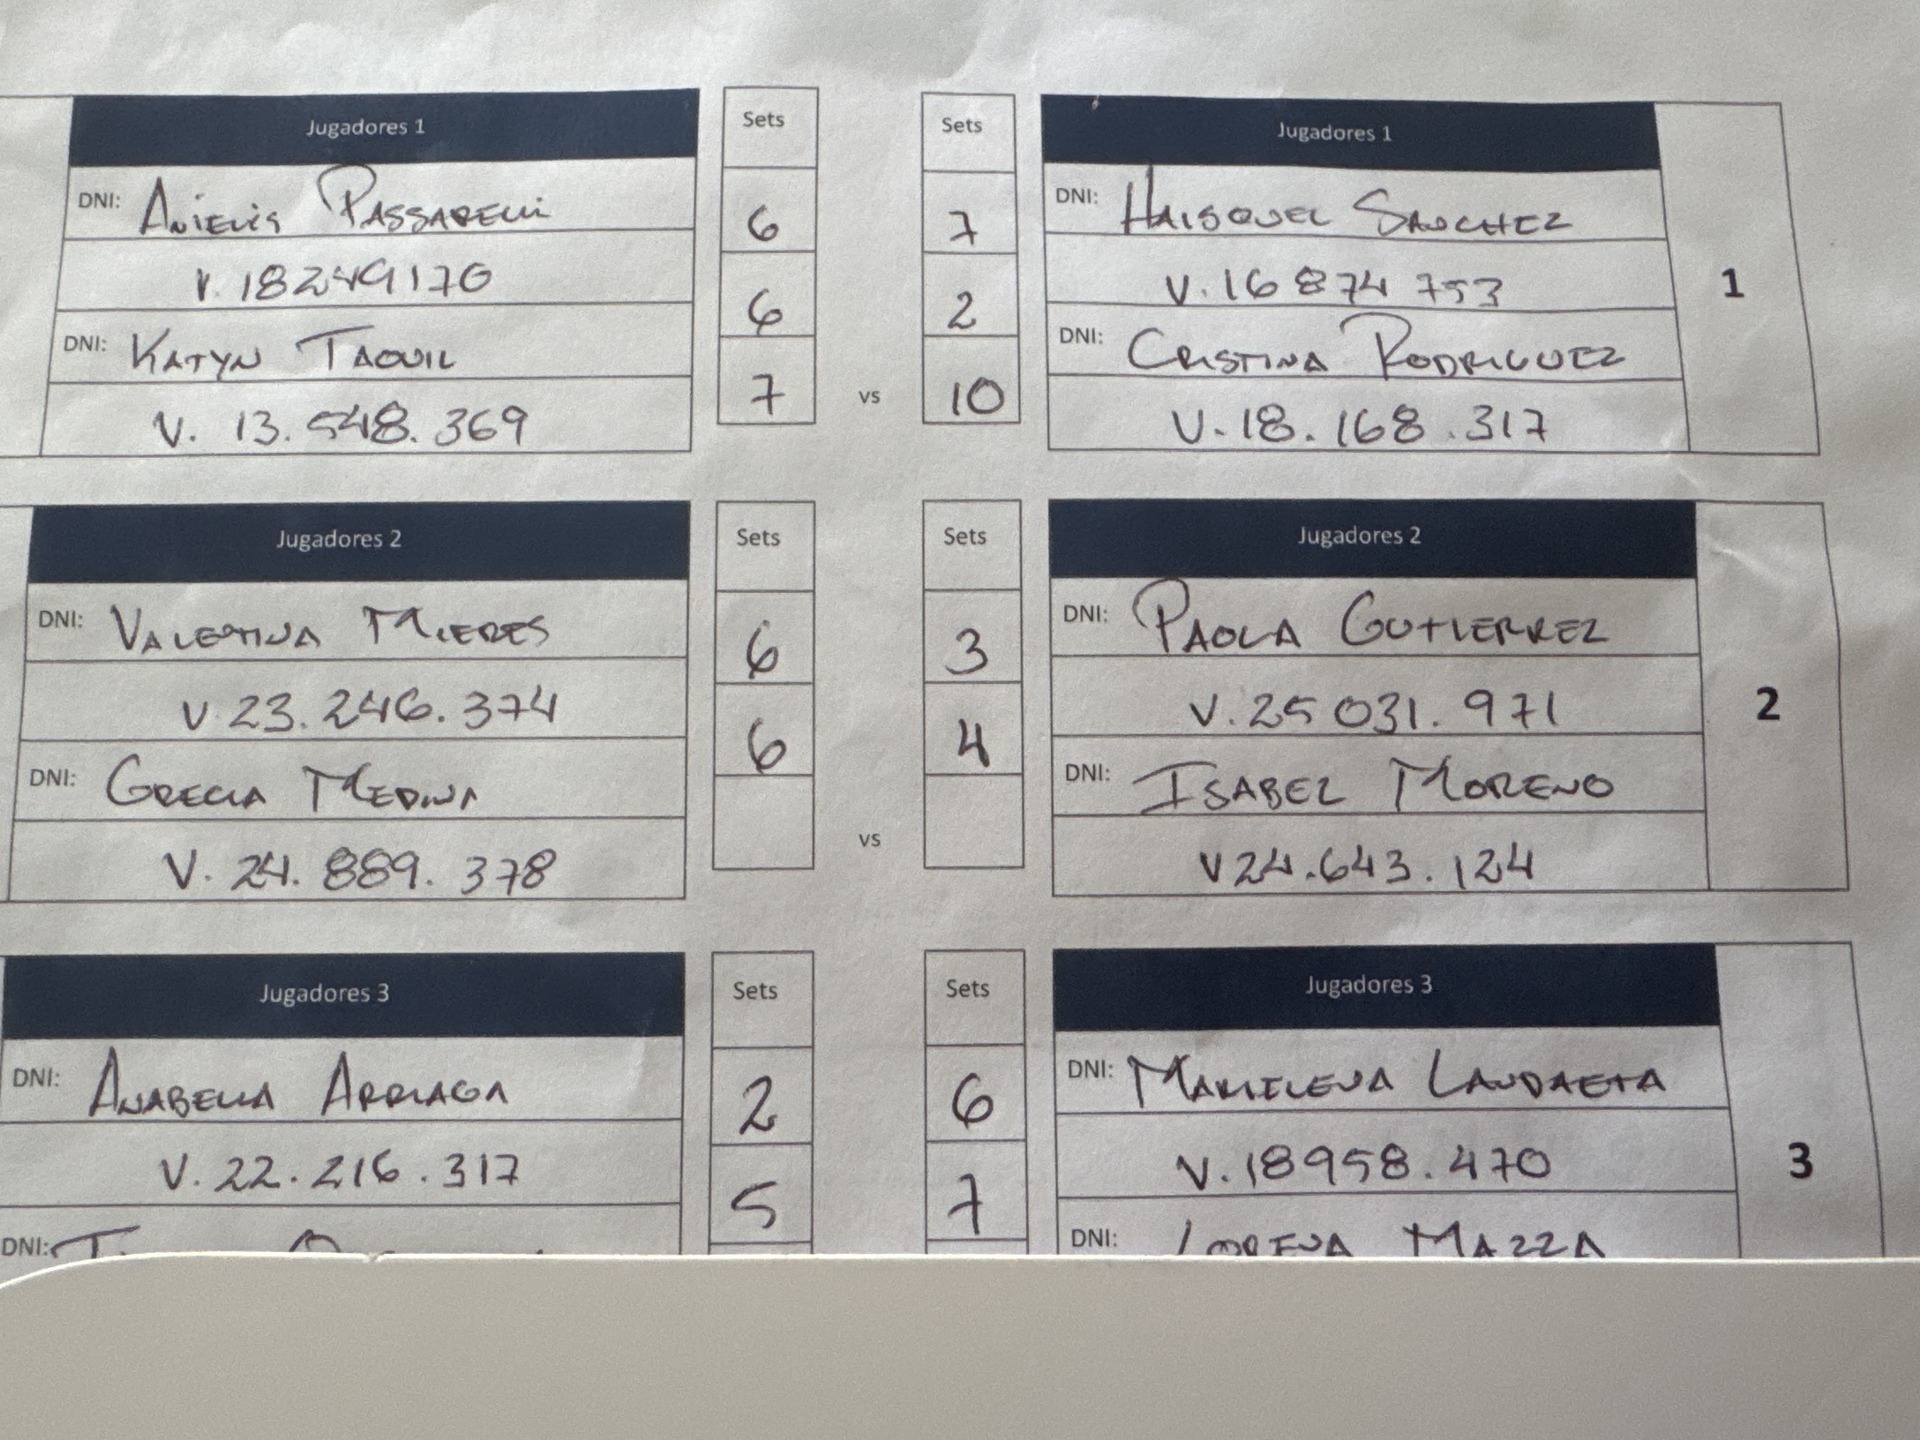 Jugadores 1
Sets
Sets
Jugadores 1
DNI: Anielis Passarelli
6
7
DNI: Haisquel Sanchez
V. 18249170
6
2
V. 16 874 753
1
DNI: Katyn Taouil
7
vs
10
DNI: Cristina Rodriguez
V. 13.548.369
V. 18.168.317
Jugadores 2
Sets
Sets
Jugadores 2
DNI: Valentina Mieres
6
3
DNI: Paola Gutierrez
V 23.246.374
6
4
V. 25 031.971
2
DNI: Grecia Medina
DNI: Isabel Moreno
vs
V. 24.889.378
V24.643.124
Jugadores 3
Sets
Sets
Jugadores 3
DNI: Anabella Arriaga
2
6
DNI: Marilena Landaeta
V. 22.216.317
5
7
V. 18958.470
3
DNI:
DNI: Lorena Mazza